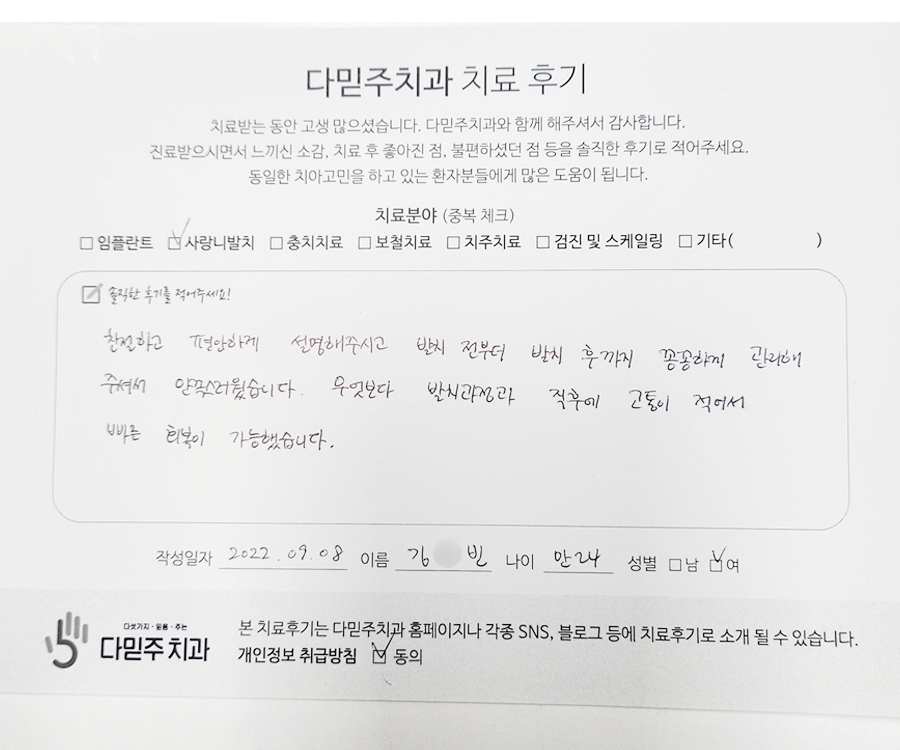 다믿주치과 치료 후기
치료받는 동안 고생 많으셨습니다. 다믿주치과와 함께 해주셔서 감사합니다.
진료받으시면서 느끼신 소감, 치료 후 좋아진 점, 불편하셨던 점 등을 솔직한 후기로 적어주세요.
동일한 치아고민을 하고 있는 환자분들에게 많은 도움이 됩니다.
치료분야 (중복 체크)
□ 임플란트 ☑ 사랑니발치 □ 충치치료 □ 보철치료 □ 치주치료 □ 검진 및 스케일링 □ 기타( )
솔직한 후기를 적어주세요!
친절하고 편안하게 설명해주시고 발치 전부터 발치 후까지 꼼꼼하게 관리해
주셔서 만족스러웠습니다. 무엇보다 발치과정과 직후에 고통이 적어서
빠른 회복이 가능했습니다.
작성일자 2022.09.08 이름 김 빈 나이 만24 성별 □ 남 ☑ 여
다섯가지·믿음·주는
다믿주치과
본 치료후기는 다믿주치과 홈페이지나 각종 SNS, 블로그 등에 치료후기로 소개 될 수 있습니다.
개인정보 취급방침 ☑ 동의